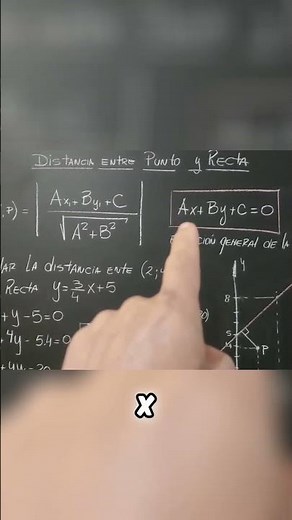 DISTANCIA ENTRE PUNTO Y RECTA
,r) = | Ax₁+By₁+C / √A²+B² |
Ax+By+C=0
GENERAL DE LA
LAR LA DISTANCIA ENTE (2;4
RECTA y=3/4x+5
y
+y-5=0
8
+4y-5.4=0
5
4
P
x